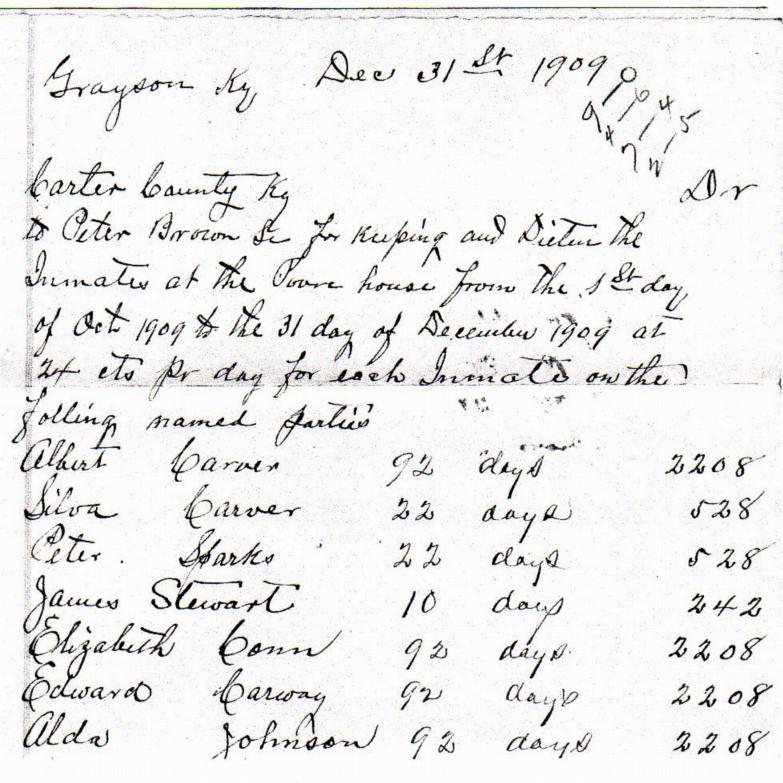 Grayson Ky Dec 31st 1909
Dr
Carter County Ky
to Peter Brown Sr for Keeping and Dieten the
Inmates at the Poore house from the 1st day
of Oct 1909 to the 31 day of December 1909 at
24 cts pr day for each Inmate on the
folling named parties
Albert Carver 92 days 2208
Silva Carver 22 days 528
Peter Sparks 22 days 528
James Stewart 10 days 242
Elizabeth Conn 92 days 2208
Edward Carway 92 days 2208
Alda Johnson 92 days 2208